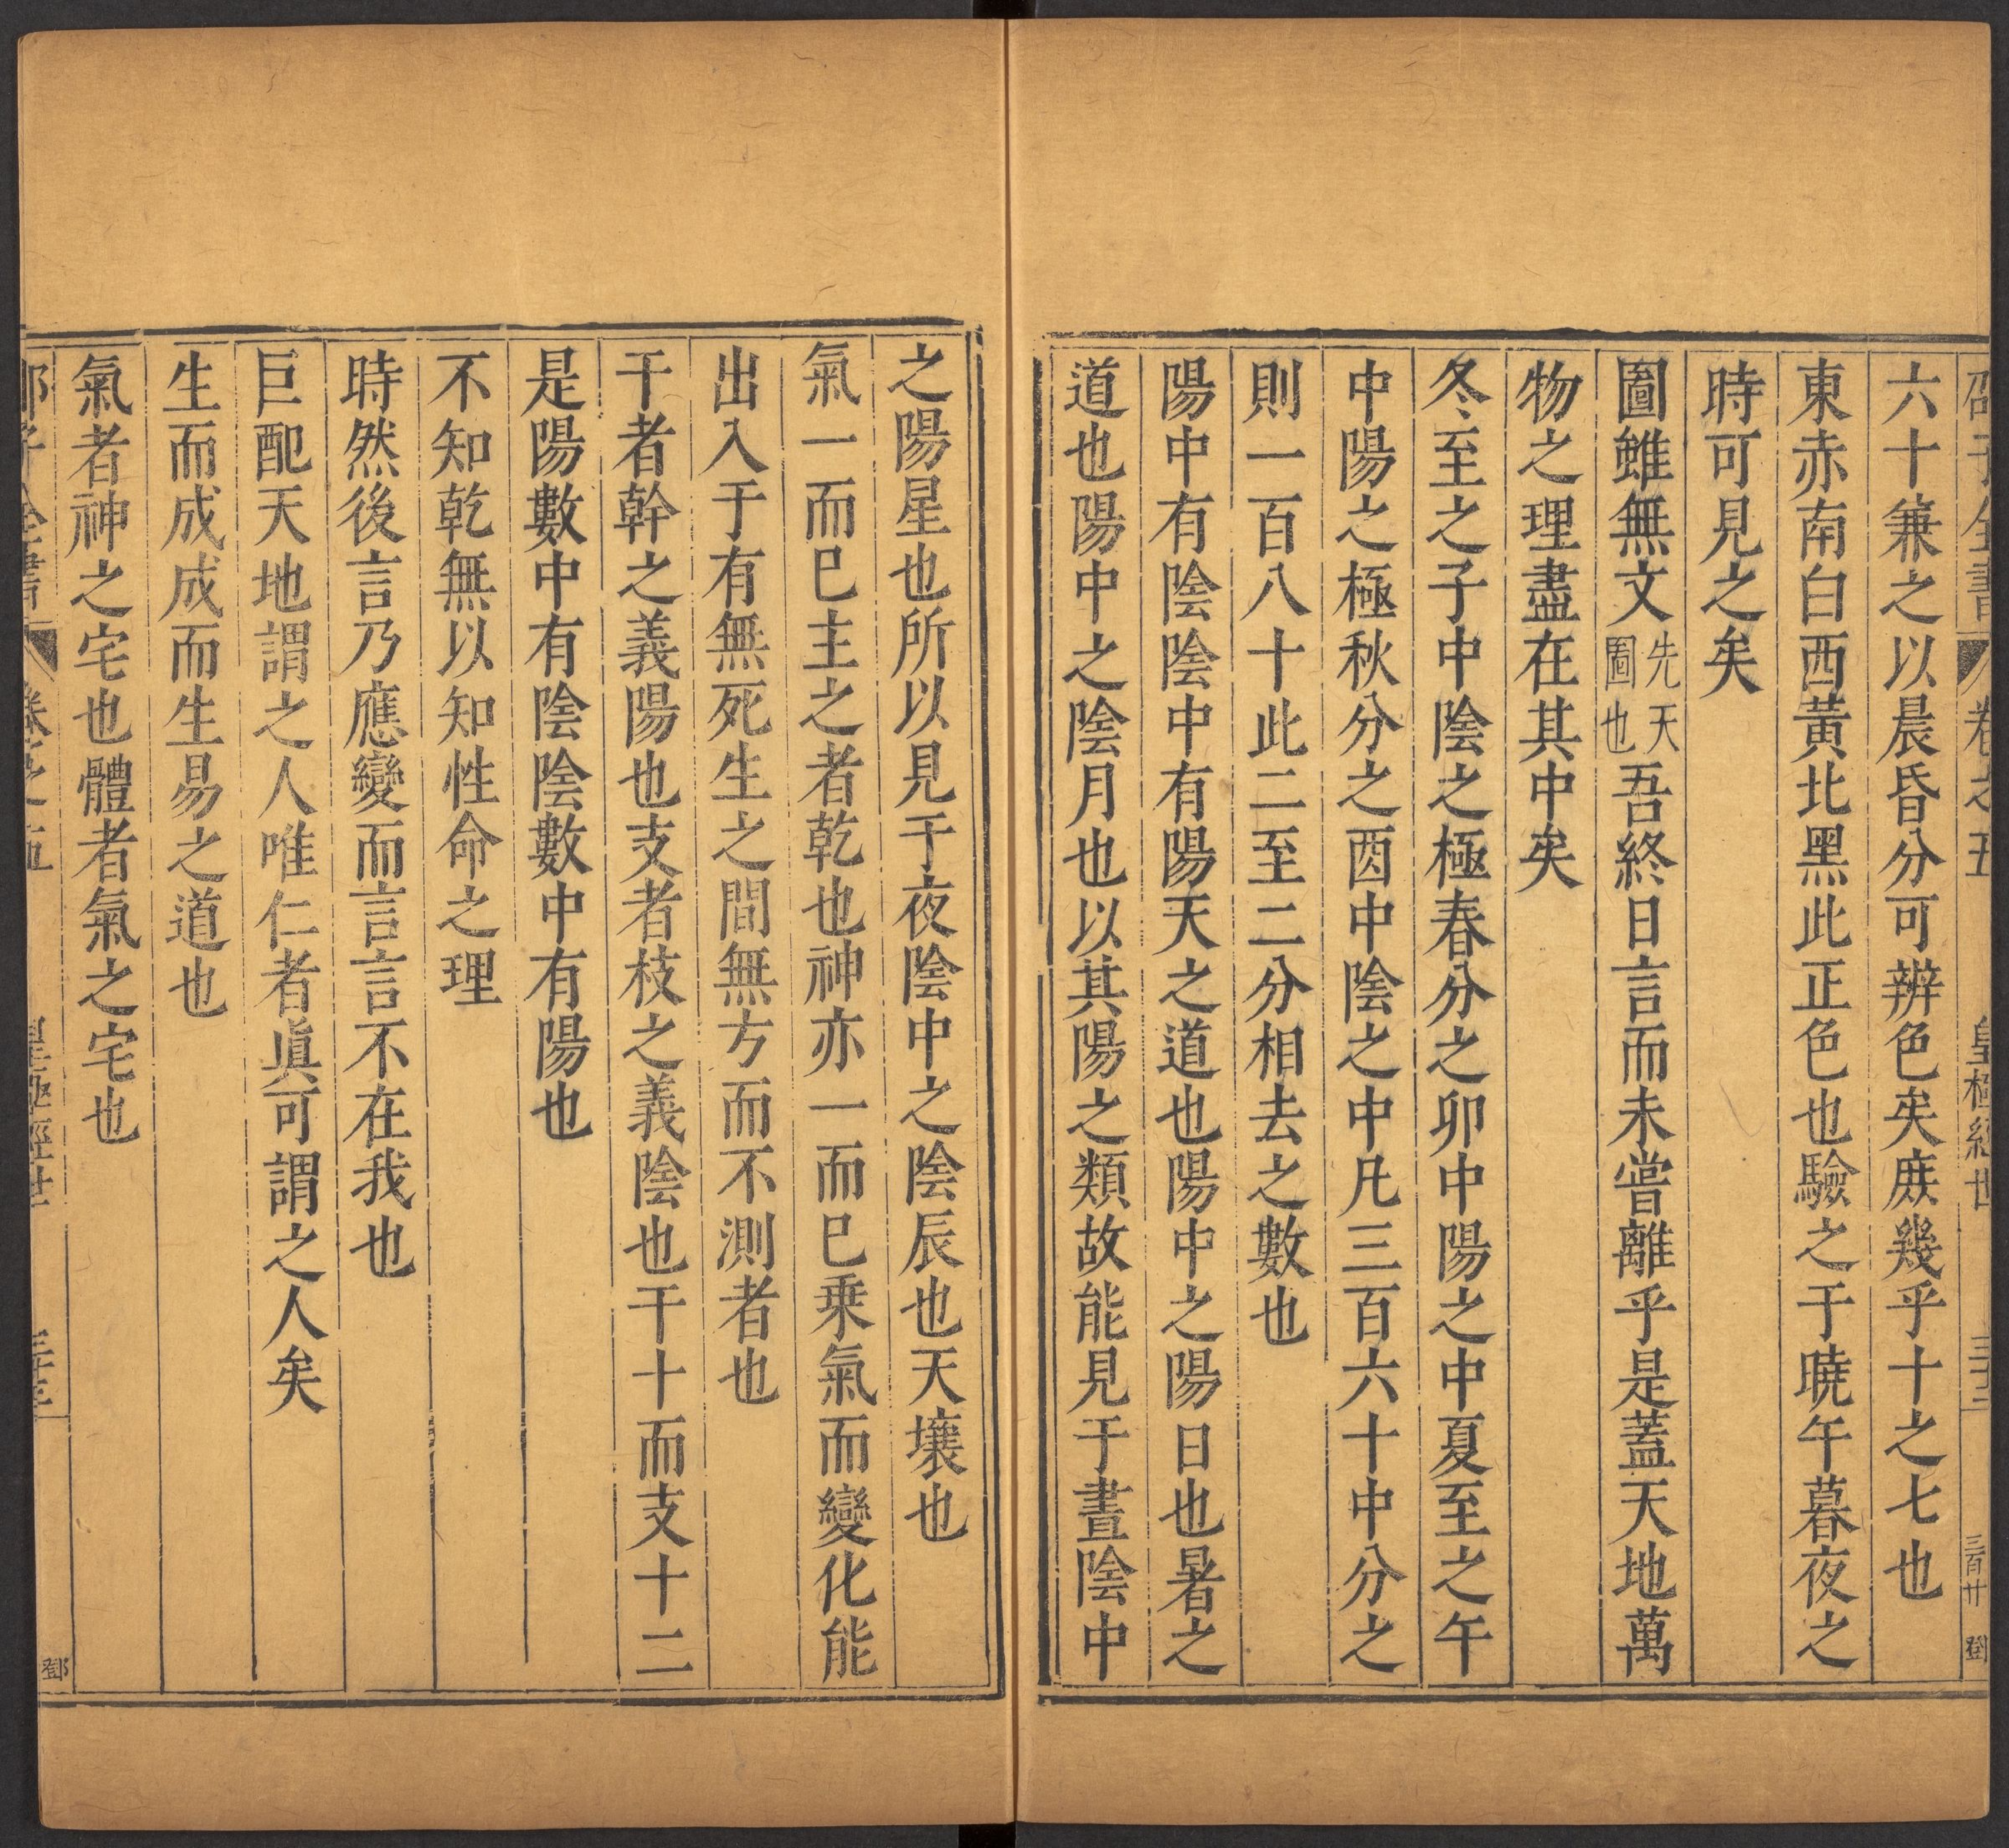 邵子全書 卷之五 皇極經世 三百廿 鄧
六十兼之以晨昏分可辨色矣庻幾乎十之七也
東赤南白西黃北黑此正色也驗之于曉午暮夜之
時可見之矣
圖雖無文先天圖也吾終日言而未嘗離乎是蓋天地萬
物之理盡在其中矣
冬至之子中陰之極春分之卯中陽之中夏至之午
中陽之極秋分之酉中陰之中凡三百六十中分之
則一百八十此二至二分相去之數也
陽中有陰陰中有陽天之道也陽中之陽日也暑之
道也陽中之陰月也以其陽之類故能見于晝陰中
之陽星也所以見于夜陰中之陰辰也天壤也
氣一而已主之者乾也神亦一而已乗氣而變化能
出入于有無死生之間無方而不測者也
干者幹之義陽也支者枝之義陰也干十而支十二
是陽數中有陰陰數中有陽也
不知乾無以知性命之理
時然後言乃應變而言言不在我也
巨配天地謂之人唯仁者眞可謂之人矣
生而成成而生易之道也
氣者神之宅也體者氣之宅也
邵子全書 卷之五 皇極經世 鄧